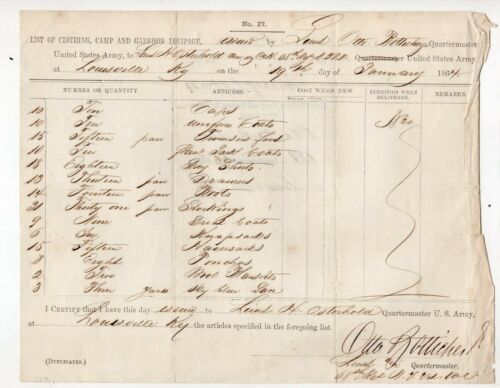 No. 27.
LIST OF CLOTHING, CAMP AND GARRISON EQUIPAGE, issued by Lieut Otto Quartermaster
United States Army, to Lieut H Osterhold Quartermaster United States Army
at Louisville Ky on the 19th of January 1864
NUMBER OR QUANTITY ARTICLES. COST WHEN NEW CONDITION WHEN DELIVERED. REMARKS.
10 Ten Caps New
10 Ten Uniform Coats
15 Fifteen pair Trowsers foot
10 Ten Sack Coats
18 Eighteen Shirts
13 Thirteen pair Drawers
14 Fourteen pair Boots
21 Twenty one pair Stockings
9 Nine Great Coats
6 Six Knapsacks
15 Fifteen Haversacks
8 Eight Ponchos
2 Two Wool Blankets
3 Three yards sky blue Lace
I CERTIFY that I have this day issued to Lieut H Osterhold Quartermaster U. S. Army,
at Louisville Ky the articles specified in the foregoing list.
Otto
Lieut Quartermaster.
(DUPLICATES.)